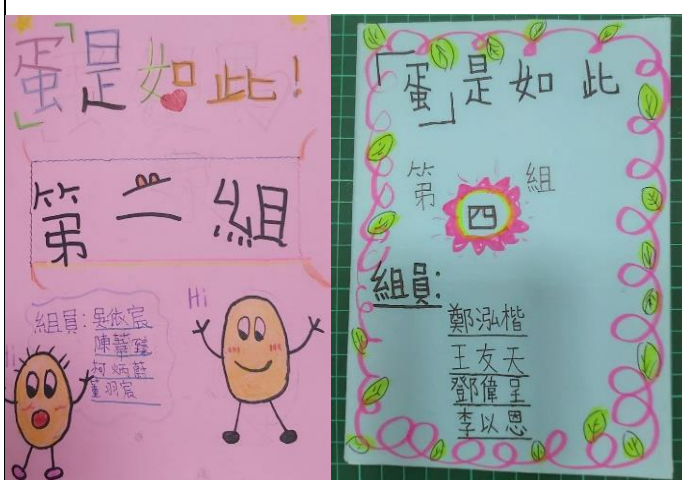 「蛋」是如此!
第二組
Hi
組員:吳依宸
陳
柯炳
董羽宸
Hi
「蛋」是如此
第四組
組員:
鄭泓楷
王友天
鄧偉呈
李以恩